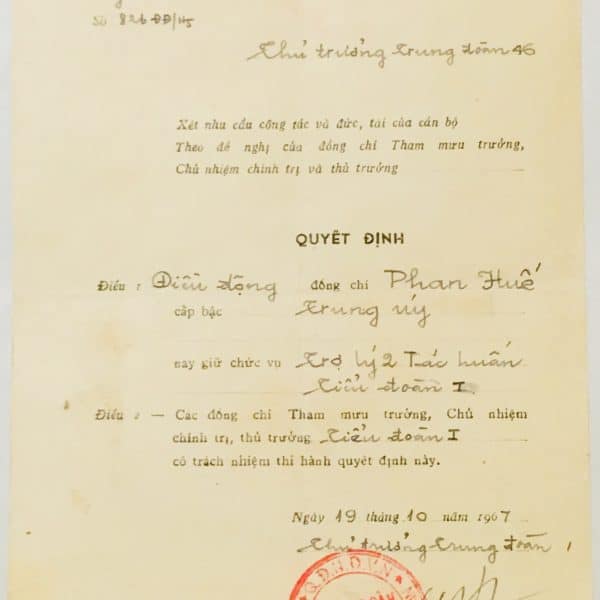 Số 826 ĐĐ/45
Thủ trưởng trung đoàn 46
Xét nhu cầu công tác và đức, tài của cán bộ
Theo đề nghị của đồng chí Tham mưu trưởng,
Chủ nhiệm chính trị và thủ trưởng
QUYẾT ĐỊNH
Điều 1 Điều động đồng chí Phan Huế
cấp bậc trung úy
nay giữ chức vụ trợ lý 2 Tác huấn
tiểu đoàn I
Điều 2 — Các đồng chí Tham mưu trưởng, Chủ nhiệm
chính trị, thủ trưởng tiểu đoàn I
có trách nhiệm thi hành quyết định này.
Ngày 19 tháng 10 năm 1967
Thủ trưởng trung đoàn
Q.Đ.N.D.V.N